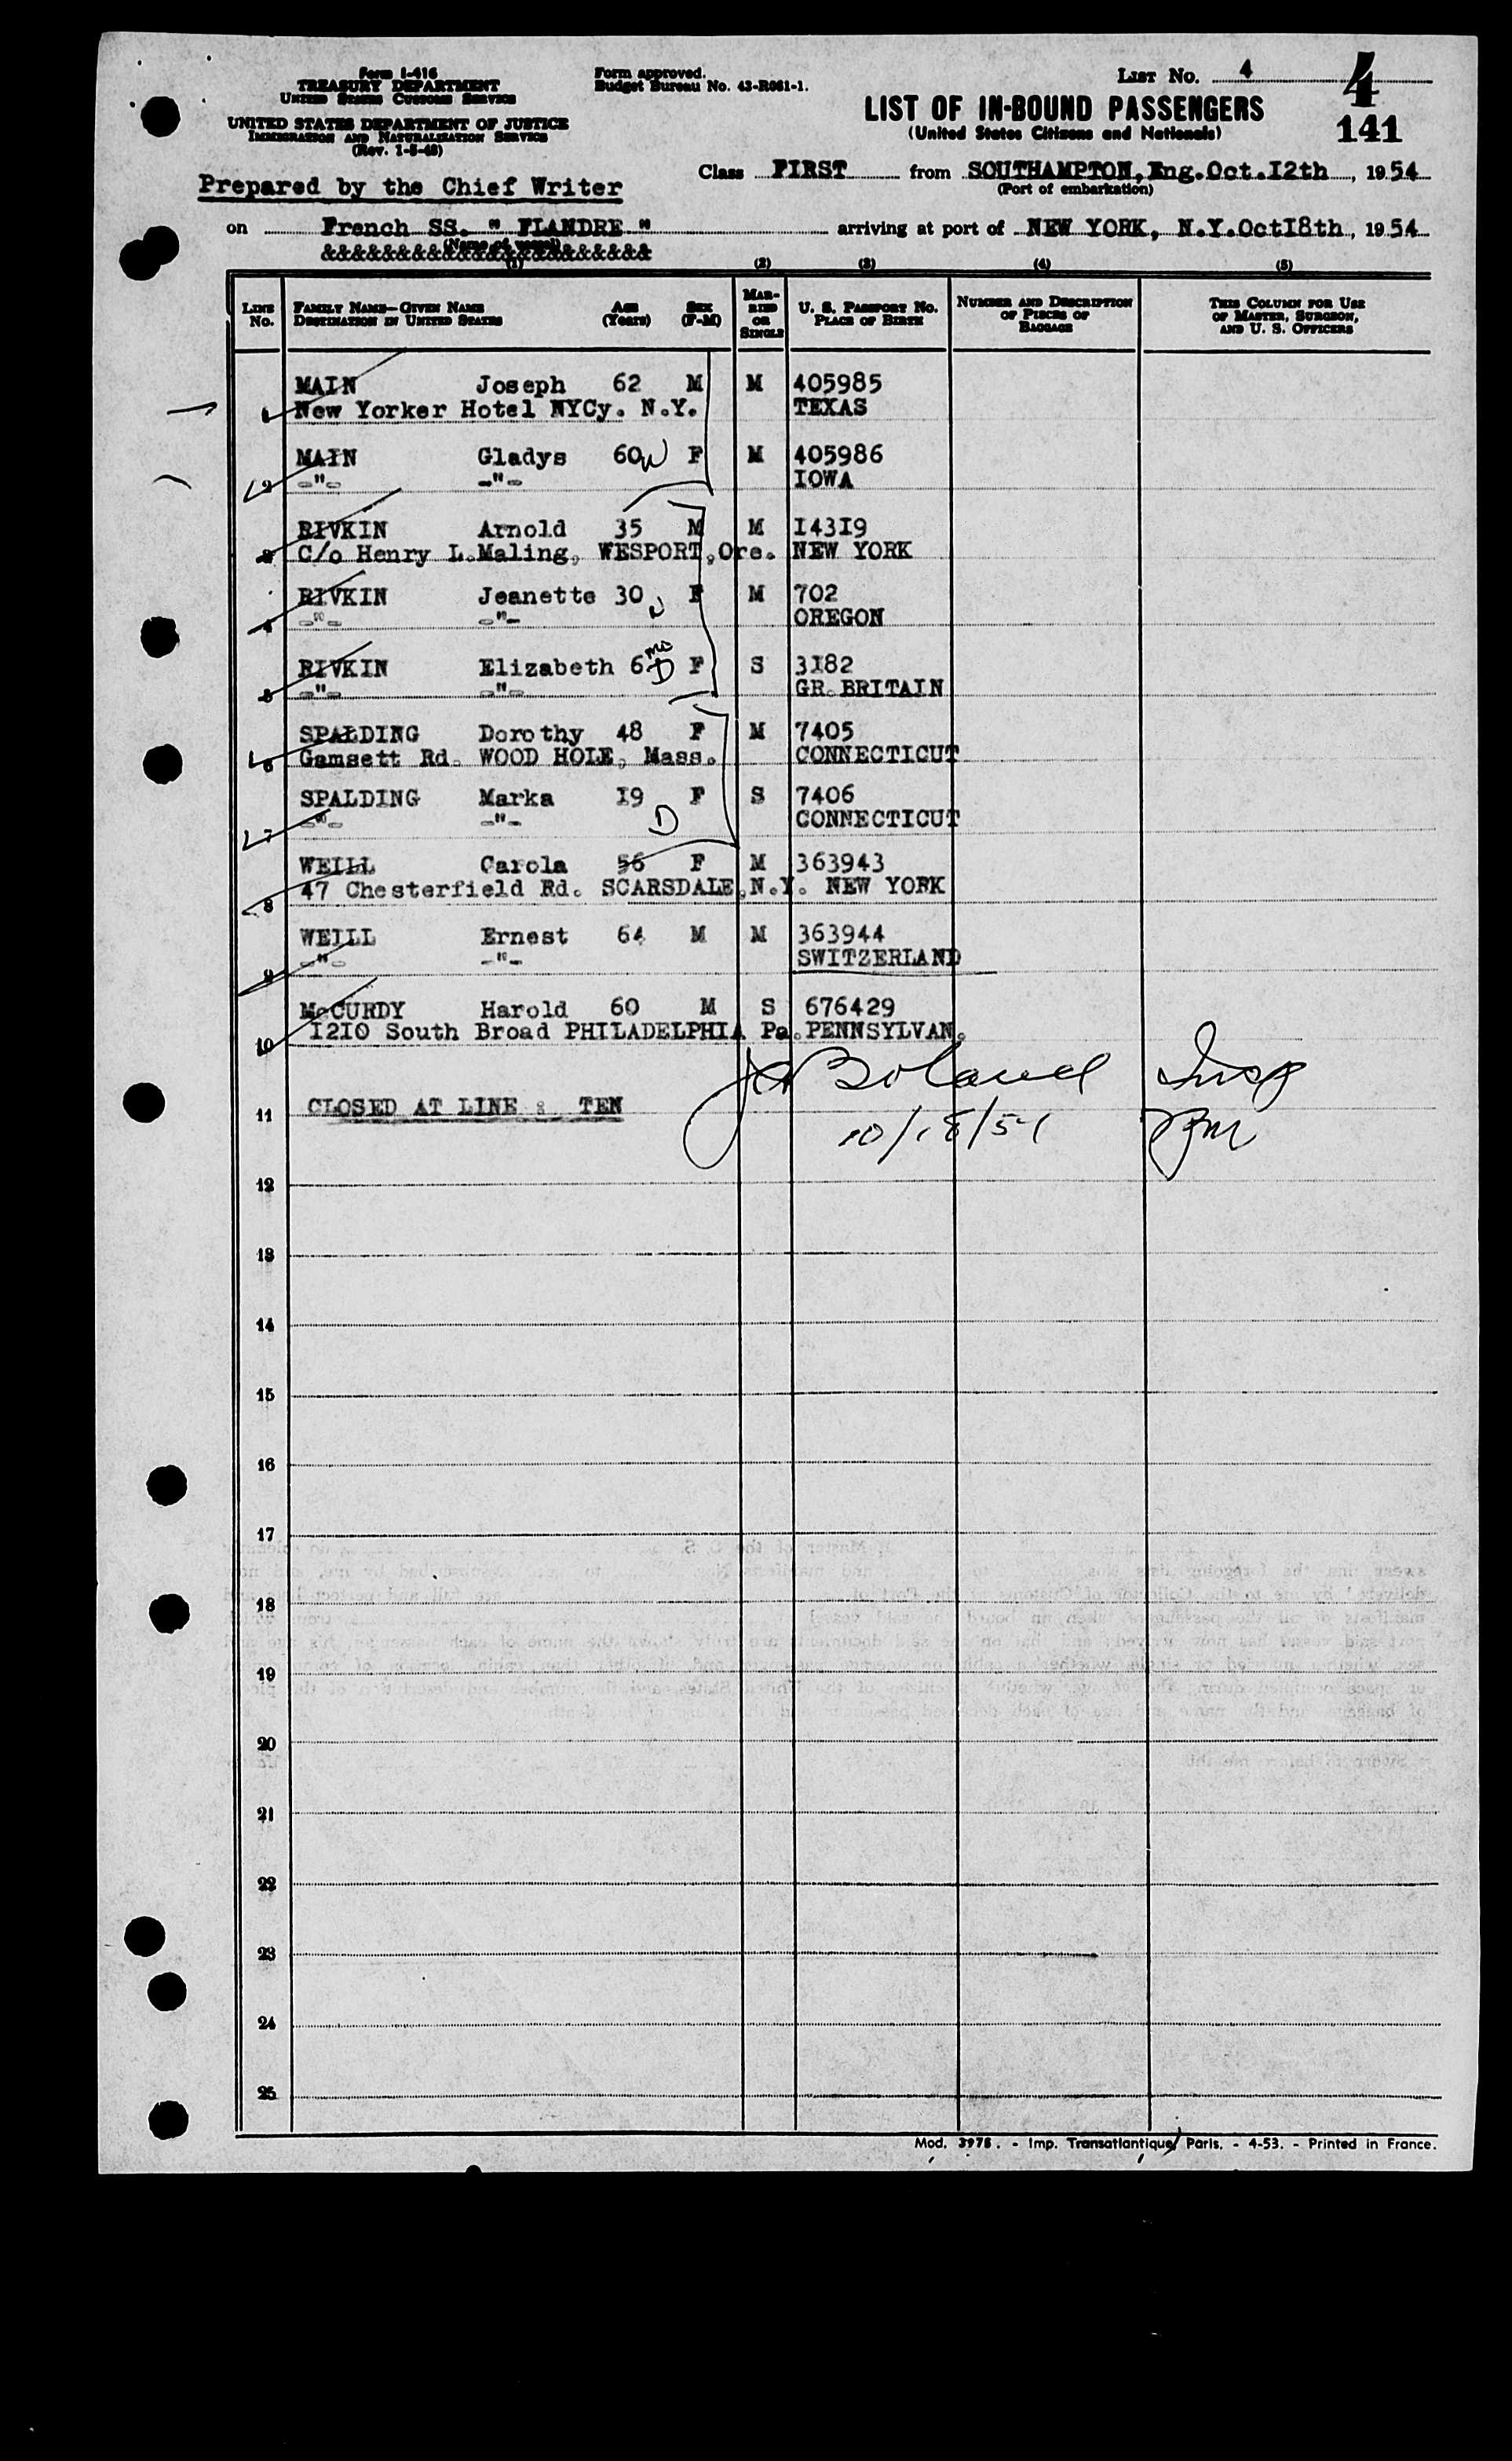 Form I-416
TREASURY DEPARTMENT
UNITED STATES CUSTOMS SERVICE
UNITED STATES DEPARTMENT OF JUSTICE
IMMIGRATION AND NATURALIZATION SERVICE
(Rev. 1-5-48)
Form approved.
Budget Bureau No. 43-R061-1.
LIST NO. 4
4
LIST OF IN-BOUND PASSENGERS
(United States Citizens and Nationals)
141
Class FIRST from SOUTHAMPTON, Eng. Oct. I2th, 1954
(Port of embarkation)
Prepared by the Chief Writer
on French SS. " FLANDRE " arriving at port of NEW YORK, N.Y. OctI8th, 1954
(Name of vessel)
&&&&&&&&&&&&&&&&&&&&&&
(1) (2) (3) (4) (5)
LINE NO. FAMILY NAME—GIVEN NAME DESTINATION IN UNITED STATES AGE (YEARS) SEX (F-M) MARRIED OR SINGLE U. S. PASSPORT NO. PLACE OF BIRTH NUMBER AND DESCRIPTION OF PIECES OF BAGGAGE THIS COLUMN FOR USE OF MASTER, SURGEON, AND U. S. OFFICERS
MAIN Joseph 62 M M 405985
1 New Yorker Hotel NYCy. N.Y. TEXAS
MAIN Gladys 60 W F M 405986
2 -"- -"- IOWA
RIVKIN Arnold 35 M M I43I9
3 C/o Henry L.Maling, WESPORT,Ore. NEW YORK
RIVKIN Jeanette 30 F M 702
4 -"- -"- OREGON
RIVKIN Elizabeth 6 mo D F S 3I82
5 -"- -"- GR.BRITAIN
SPALDING Dorothy 48 F M 7405
6 Gamsett Rd. WOOD HOLE, Mass. CONNECTICUT
SPALDING Marka I9 D F S 7406
7 -"- -"- CONNECTICUT
WEILL Carola 56 F M 363943
8 47 Chesterfield Rd. SCARSDALE,N.Y. NEW YORK
WEILL Ernest 64 M M 363944
9 -"- -"- SWITZERLAND
McCURDY Harold 60 M S 676429
10 I2I0 South Broad PHILADELPHIA Pa. PENNSYLVAN.
Boland Insp
11 CLOSED AT LINE : TEN
10/18/54
12
13
14
15
16
17
18
19
20
21
22
23
24
25
Mod. 3978. - Imp. Transatlantique, Paris. - 4-53. - Printed in France.